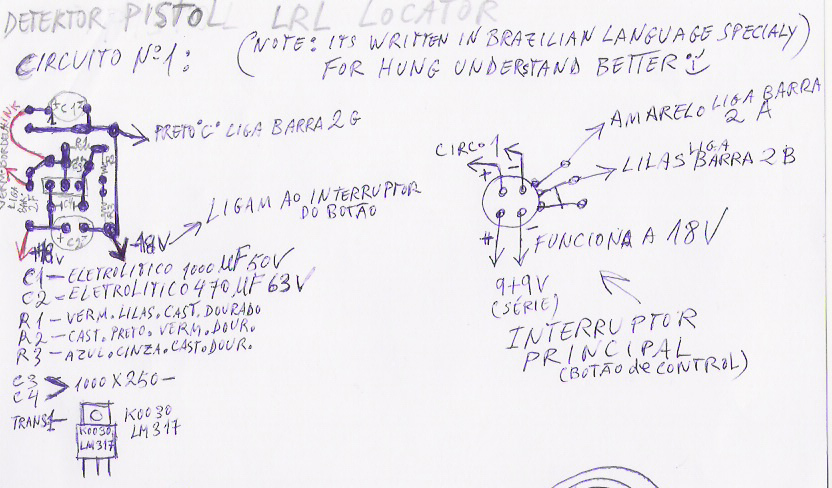 DETEKTOR PISTOL LRL LOCATOR
CIRCUITO Nº1: (NOTE: ITS WRITTEN IN BRAZILIAN LANGUAGE SPECIALY)
FOR HUNG UNDERSTAND BETTER
+C1-
PRETO "C" LIGA BARRA 2G
R1
+C2-
+18V
-18V
LIGAM AO INTERRUPTOR
DO BOTÃO
C1 - ELETROLITICO 1000 µF 50V
C2 - ELETROLITICO 470 µF 63V
R1 - VERM. LILAS. CAST. DOURADO
R2 - CAST. PRETO. VERM. DOUR.
R3 - AZUL. CINZA. CAST. DOUR.
C3
C4 > 1000 X 250 -
TRANS1-
K0030
LM317
K0030
LM317
AMARELO LIGA BARRA
2 A
CIRC. 1
+ -
LILAS LIGA BARRA 2B
FUNCIONA A 18V
9+9V
(SÉRIE)
INTERRUPTOR
PRINCIPAL
(BOTÃO de CONTROL)